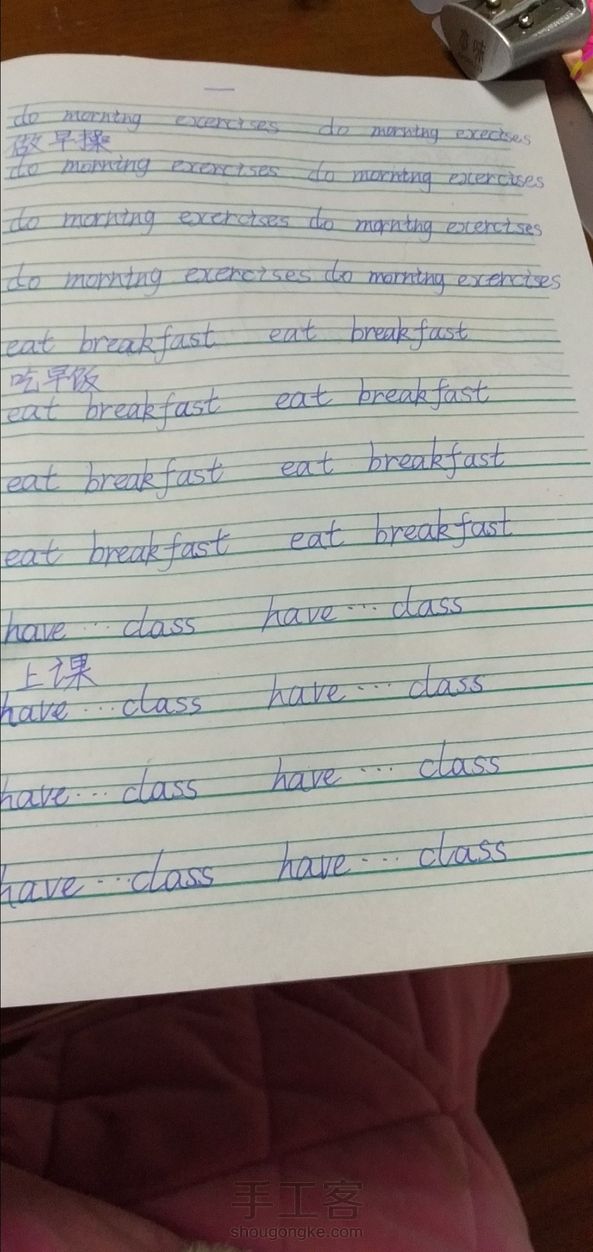 意味
一
do morning exercises do morning execises
做早操
do morning exercises do morning exercises
do morning exercises do morning exercises
do morning exercises do morning exercises
eat breakfast eat breakfast
吃早饭
eat breakfast eat breakfast
eat breakfast eat breakfast
eat breakfast eat breakfast
have … class have … class
上课
have … class have … class
have … class have … class
have … class have … class
手工客
shougongke.com